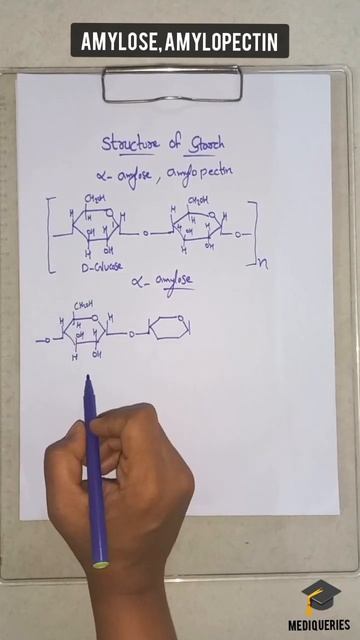 AMYLOSE, AMYLOPECTIN
Structure of Starch
α- amylose, amylopectin
CH2OH CH2OH
H H O H H H O H
OH H O OH H O
H OH H OH n
D-Glucose
α- amylose
CH2OH
H H O H O
O OH H O
H OH
MEDIQUERIES